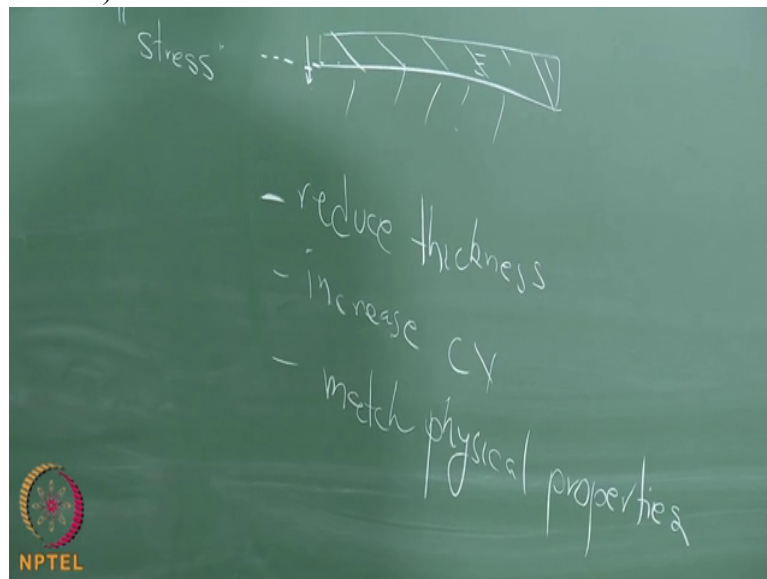 "stress"
- reduce thickness
- increase CV
- match physical properties
NPTEL